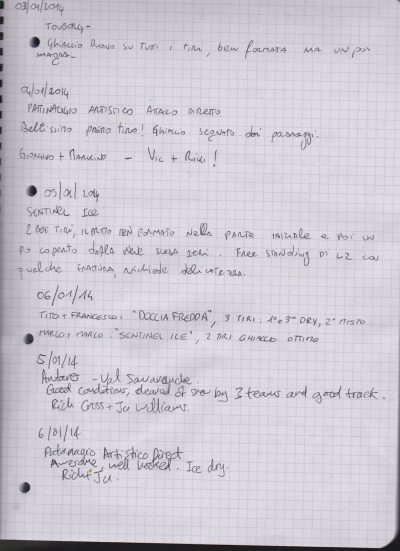 03/01/2014
TOUBORG -
GHIACCIO BUONO SU TUTI I TIRI, BEN FORMATA MA UN PO'
MAGRA -
04/01/2014
PATINAGGIO ARTISTICO ATTACCO DIRETTO
BELLISSIMO PRIMO TIRO! GHIACCIO SEGNATO DAI PASSAGGI.
+ - VIC + RIKI!
05/01/2014
SENTINEL ICE
2 BEI TIRI, IL PRIMO BEN FORMATO NELLA PARTE INIZIALE E POI UN
PO COPERTO DALLA NEVE SCESA IERI. FREE STANDING DI L2 CON
QUALCHE FRATTURA, RICHIEDE DELICATEZZA.
06/01/14
TITO + FRANCESCO: "DOCCIA FREDDA", 3 TIRI: 1° e 3° DRY, 2° MISTO
MARCO + MARCO: "SENTINEL ICE", 2 TIRI GHIACCIO OTTIMO
5/01/14
- Val Savaranche.
Good conditions, cleared of snow by 3 teams and good track.
Rich Cross + Ju Williams.
6/01/14
Patanagio Artistico Direct
Awesome, well worked. Ice dry.
Rich + Ju.